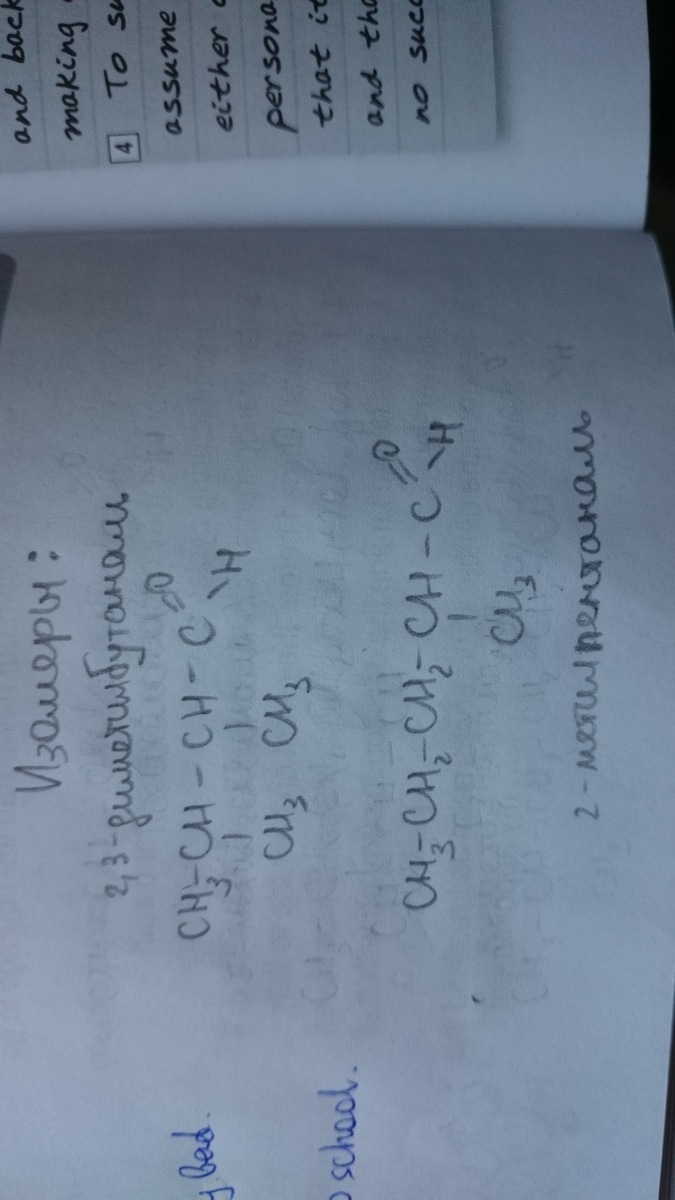 and back
making
4 To su
assume
either
persona
that it
and tha
no succ
Изомеры:
2,3-диметилбутаналь
CH3-CH-CH-C=O
\H
CH3 CH3
CH3-CH2-CH2-CH-C=O
\H
CH3
2-метилпентаналь
bad.
school.